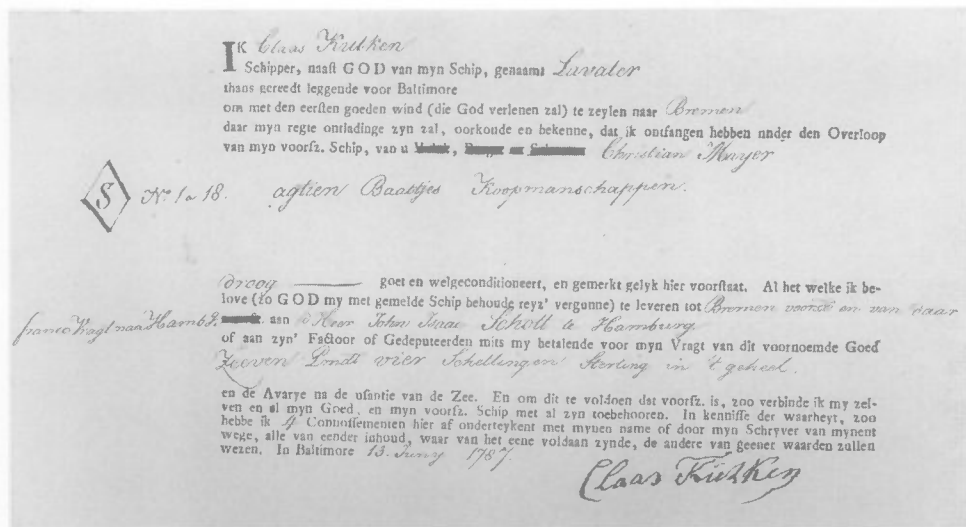 IK Claas Kulken
Schipper, naast GOD van myn Schip, genaamt Lavater
thans gereedt leggende voor Baltimore
om met den eersten goeden wind (die God verlenen zal) te zeylen naar Bremen
daar myn regte ontladinge zyn zal, oorkonde en bekenne, dat ik ontfangen hebben under den Overloop
van myn voorsz. Schip, van u Christian Mayer
S No. 1 a 18. agtien Baaltjes Koopmanschappen.
droog goet en welgeconditioneert, en gemerkt gelyk hier voorstaat. Al het welke ik be-
love (zo GOD my met gemelde Schip behoude reyz' vergunne) te leveren tot Bremen voorts en van daar
franco Vragt naa Hambg. aan d'Heer John Isaac Scholl te Hamburg
of aan zyn' Factoor of Gedeputeerden mits my betalende voor myn Vragt van dit voornoemde Goed
Zeeven Pondt vier Schellingen Sterling in 't geheel.
en de Avarye na de usantie van de Zee. En om dit te voldoen dat voorsz. is, zoo verbinde ik my zel-
ven en al myn Goed, en myn voorsz. Schip met al zyn toebehooren. In kennisse der waarheyt, zoo
hebbe ik 4 Connossementen hier af onderteykent met mynen name of door myn Schryver van mynent
wege, alle van eender inhoud, waar van het eene voldaan zynde, de andere van geener waarden zullen
wezen. In Baltimore 13. Juny 1787.
Claas Kulken